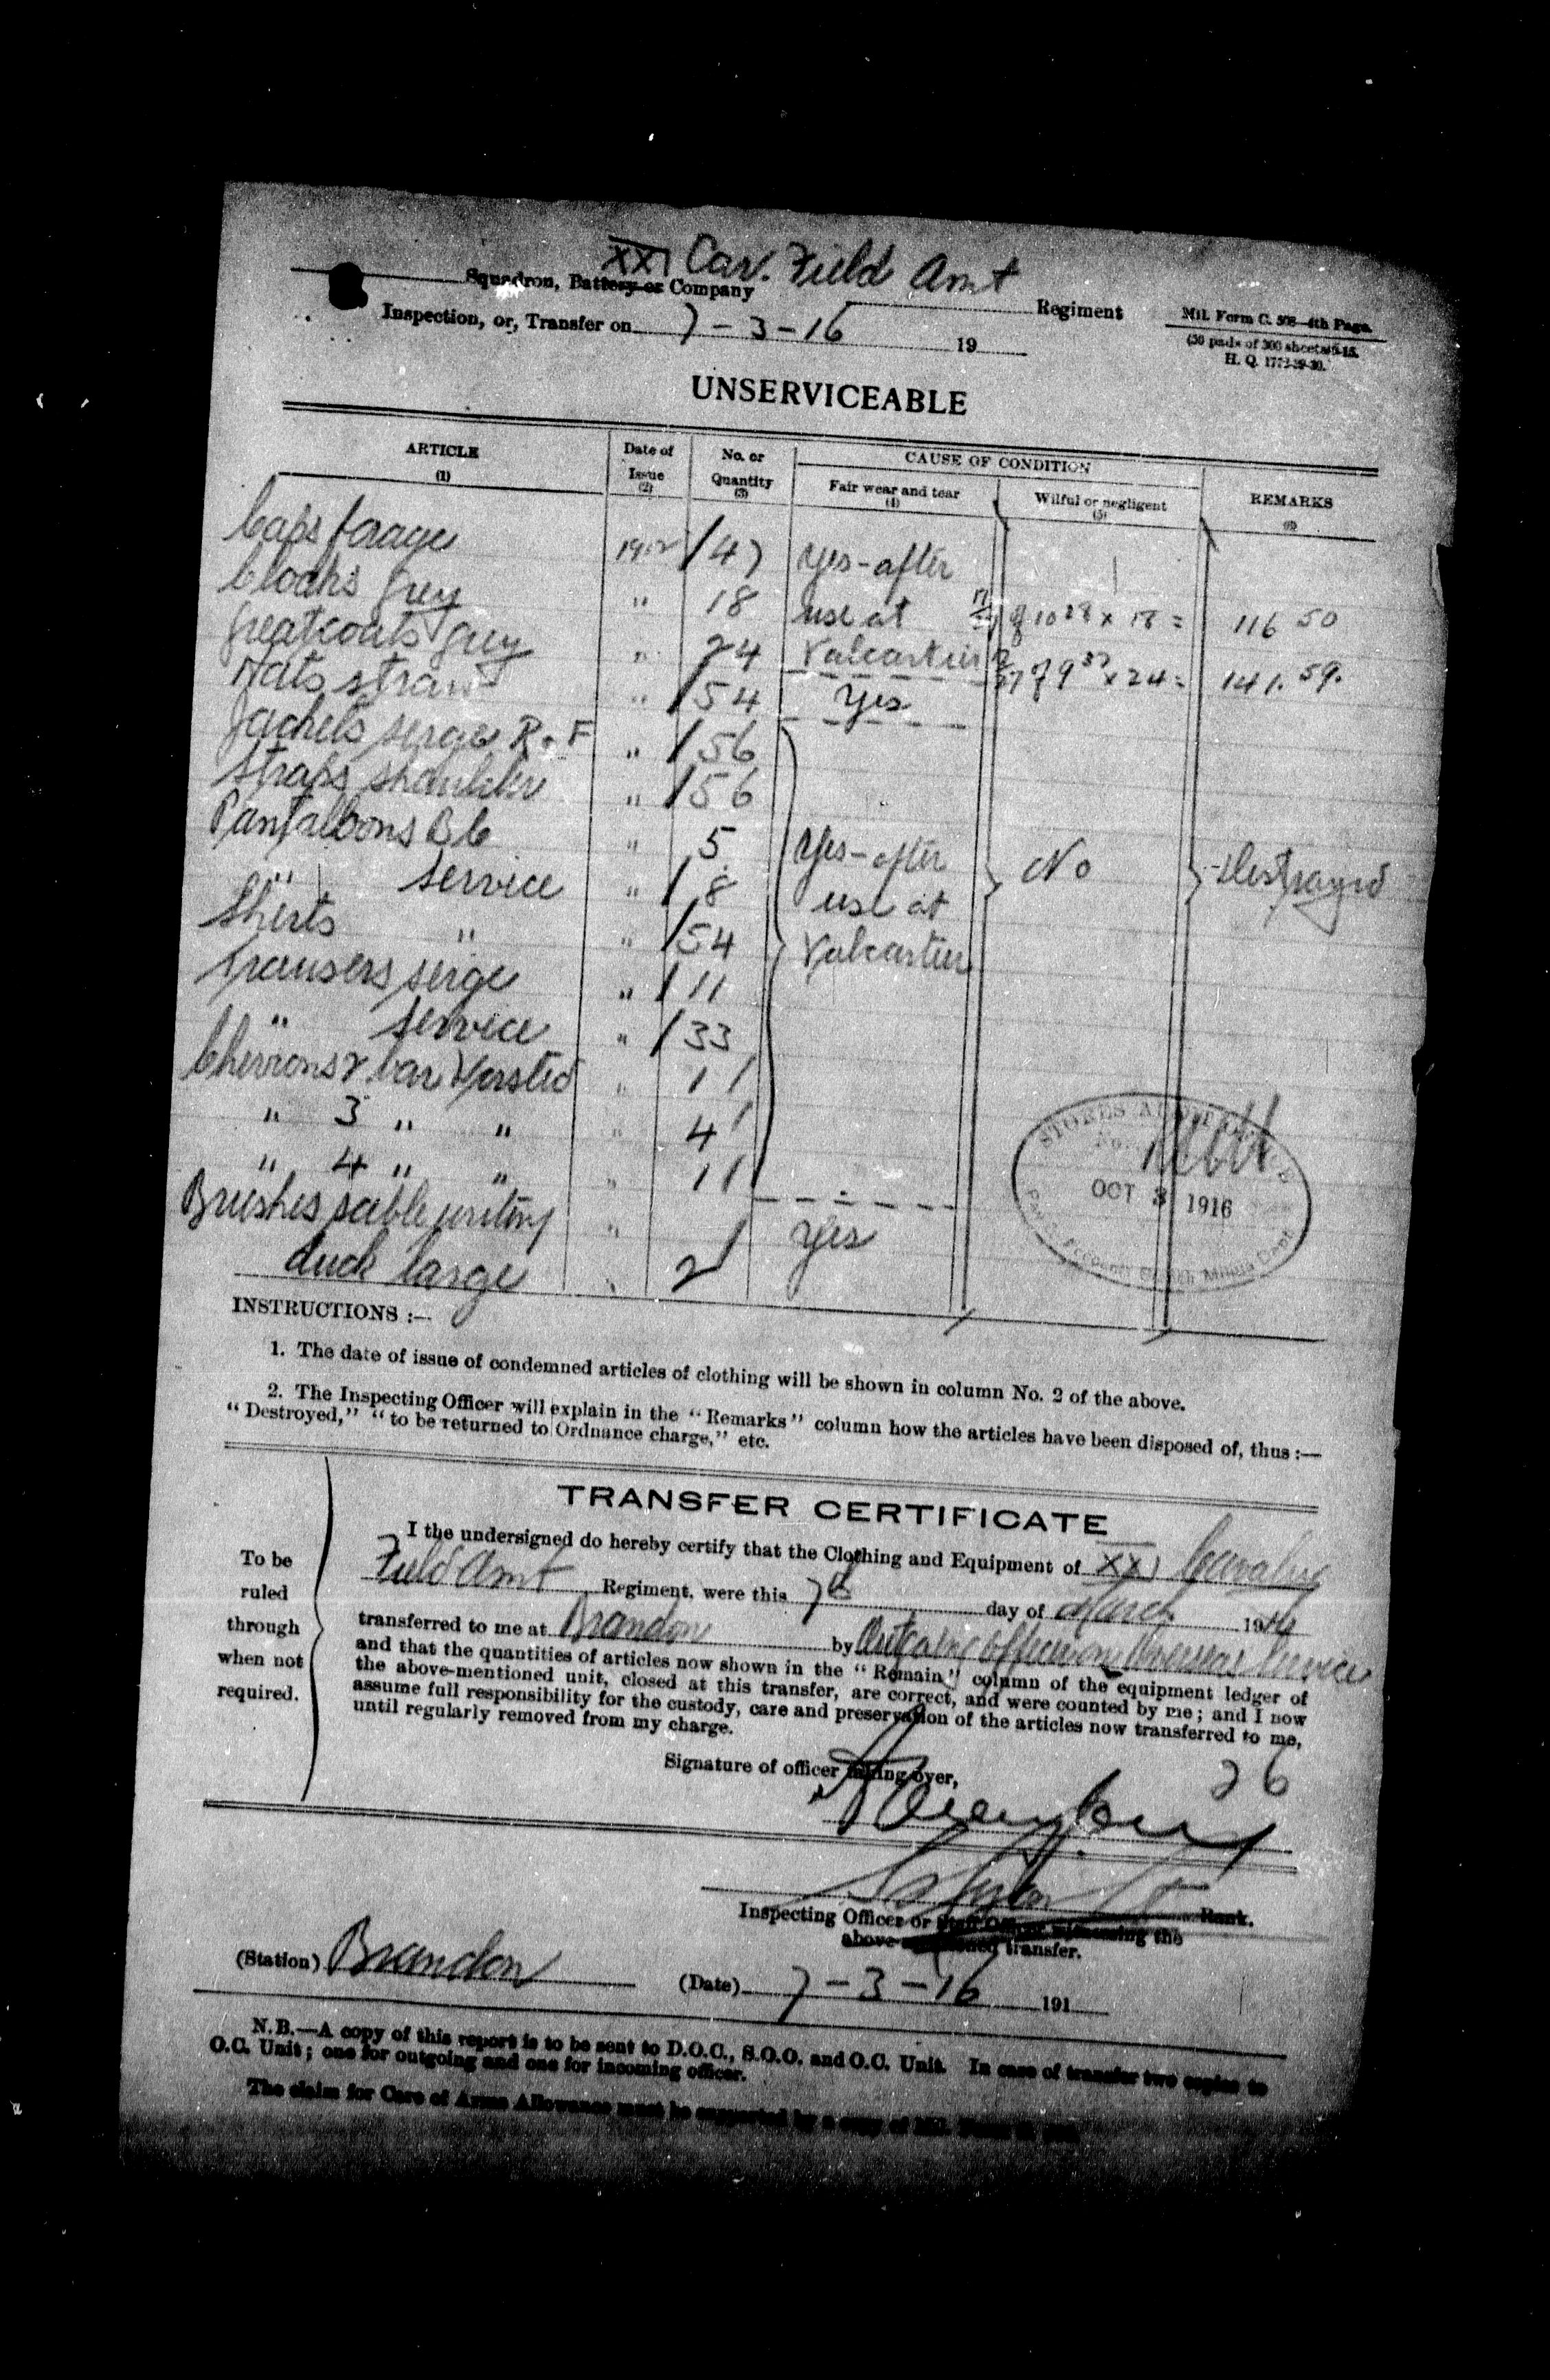 XXI Cav. Field Amt
Squadron, Battery or Company Regiment
Inspection, or, Transfer on 7-3-16 19
Mil. Form C. 508—4th Page.
(50 pads of 300 sheets)
H. Q. 1772-39-30.
UNSERVICEABLE
ARTICLE (1) Date of Issue (2) No. or Quantity (3) CAUSE OF CONDITION Fair wear and tear (4) Wilful or negligent (5) REMARKS (6)
Caps forage 1912 47 Yes - after
Cloaks grey " 18 use at 10 28 x 18 = 116 50
Greatcoats grey " 24 Valcartier 9 37 x 24 = 141.59.
Hats straw " 54 Yes
Jackets serge R. F " 56
Straps shoulder " 56
Pantaloons B C " 5 Yes - after No Destroyed
" Service " 8 use at
Shirts " " 54 Valcartier
Trousers serge " 11
" Service " 33
Chevrons 2 bar Worsted " 1
" 3 " " " 4
" 4 " " " 1
Brushes sable writing " Yes
duck large " 2
STORES
No.
OCT 3 1916
Militia Dept
INSTRUCTIONS :—
1. The date of issue of condemned articles of clothing will be shown in column No. 2 of the above.
2. The Inspecting Officer will explain in the "Remarks" column how the articles have been disposed of, thus :—
"Destroyed," "to be returned to Ordnance charge," etc.
TRANSFER CERTIFICATE
To be ruled through when not required.
I the undersigned do hereby certify that the Clothing and Equipment of XXI Cavalry
Field Amt Regiment, were this 7th day of March 1916
transferred to me at Brandon by Outgoing Officer on Overseas Service
and that the quantities of articles now shown in the "Remain" column of the equipment ledger of
the above-mentioned unit, closed at this transfer, are correct, and were counted by me; and I now
assume full responsibility for the custody, care and preservation of the articles now transferred to me,
until regularly removed from my charge.
26
Signature of officer taking over,
Rank.
Inspecting Officer or Staff Officer witnessing the
above-mentioned transfer.
(Station) Brandon (Date) 7-3-16 191
N.B.—A copy of this report is to be sent to D.O.C., S.O.O. and O.C. Unit. In case of transfer two copies to
O.C. Unit; one for outgoing and one for incoming officer.
The claim for Care of Arms Allowance must be supported by a copy of